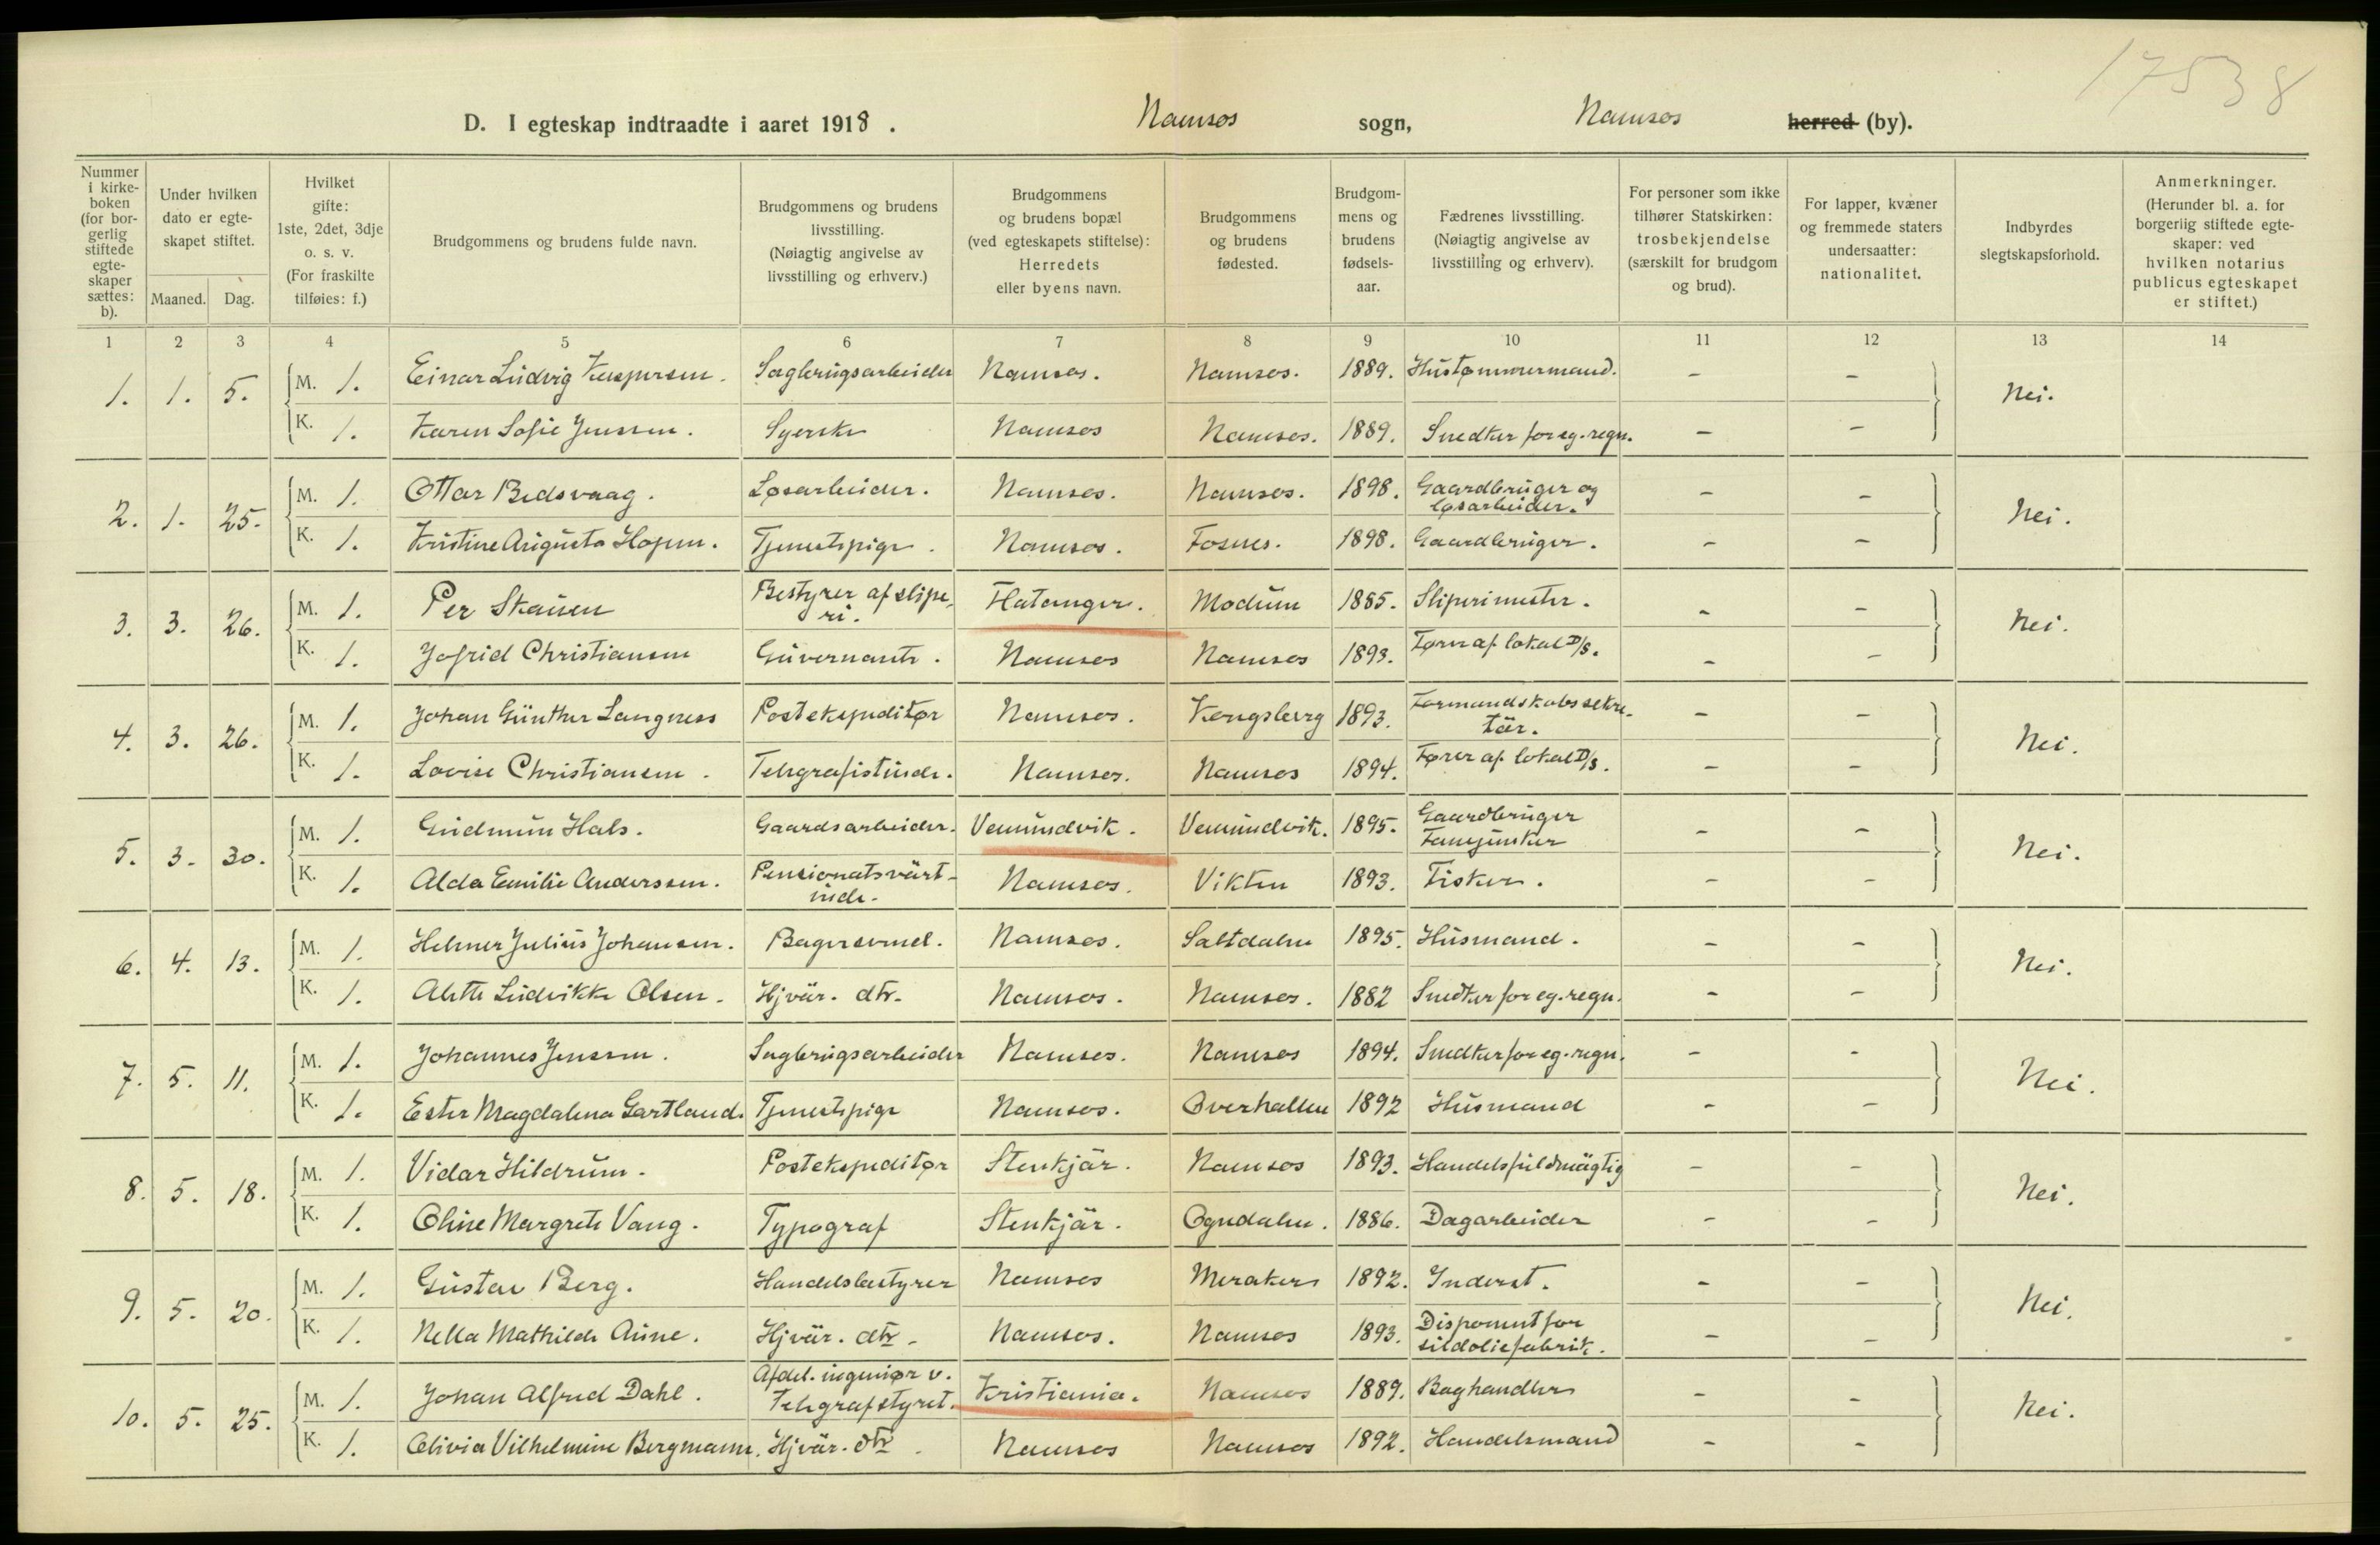 17538
D. I egteskap indtraadte i aaret 1918. Namsos sogn, Namsos herred (by).
Nummer i kirkeboken (for borgerlig stiftede egteskaper sættes: b).
Under hvilken dato er egteskapet stiftet.
Maaned. Dag.
Hvilket gifte: 1ste, 2det, 3dje o. s. v. (For fraskilte tilføies: f.)
Brudgommens og brudens fulde navn.
Brudgommens og brudens livsstilling. (Nøiagtig angivelse av livsstilling og erhverv.)
Brudgommens og brudens bopæl (ved egteskapets stiftelse): Herredets eller byens navn.
Brudgommens og brudens fødested.
Brudgommens og brudens fødselsaar.
Fædrenes livsstilling. (Nøiagtig angivelse av livsstilling og erhverv).
For personer som ikke tilhører Statskirken: trosbekjendelse (særskilt for brudgom og brud).
For lapper, kvæner og fremmede staters undersaatter: nationalitet.
Indbyrdes slegtskapsforhold.
Anmerkninger. (Herunder bl. a. for borgerlig stiftede egteskaper: ved hvilken notarius publicus egteskapet er stiftet.)
1 2 3 4 5 6 7 8 9 10 11 12 13 14
1. 1. 5. M. 1. Einar Ludvig Kaspersen. Sagbrugsarbeider Namsos. Namsos. 1889. Hustømmermand. - - Nei.
K. 1. Karen Sofie Jenssen. Syerske Namsos Namsos. 1889. Smedker for eg. regn. - -
2. 1. 25. M. 1. Ottar Bedsvaag. Løsarbeider. Namsos. Namsos. 1898. Gaardbruger og løsarbeider. - - Nei.
K. 1. Kristine Augusta Hopen. Tjenestepige. Namsos. Fosnes. 1898. Gaardbruger. - -
3. 3. 26. M. 1. Per Skauen Bestyrer af sliperi. Flatanger. Modum 1885. Sliperimester. - - Nei.
K. 1. Jofrid Christiansen Guvernante. Namsos Namsos 1893. Fører af lokal D/S. - -
4. 3. 26. M. 1. Johan Günther Langness Postekspeditør Namsos. Kongsberg 1893. Formandskabssekretär. - - Nei.
K. 1. Lovise Christiansen. Telegrafistinde. Namsos. Namsos 1894. Fører af lokal D/S. - -
5. 3. 30. M. 1. Gudmun Hals. Gaardsarbeider. Vemundvik. Vemundvik. 1895. Gaardbruger Fanejunker - - Nei.
K. 1. Alda Emilie Anderssen. Pensionatsvärtinde. Namsos. Vikten 1893. Fisker. - -
6. 4. 13. M. 1. Helmer Julius Johansen. Bagersvend. Namsos. Saltdalen 1895. Husmand. - - Nei.
K. 1. Alette Ludvikke Olsen. Hjvär. dtr. Namsos. Namsos. 1882 Smedker for eg. regn. - -
7. 5. 11. M. 1. Johannes Jenssen. Sagbrugsarbeider Namsos. Namsos 1894. Smedker for eg. regn. - - Nei.
K. 1. Ester Magdalena Gartland. Tjenestepige Namsos. Overhallen 1892 Husmand - -
8. 5. 18. M. 1. Vidar Hildrum. Postekspeditør Stenkjär. Namsos 1893. Handelsfuldmägtig - - Nei.
K. 1. Oline Margrete Vang. Typograf Stenkjär. Ogndalen. 1886. Dagarbeider - -
9. 5. 20. M. 1. Gustav Berg. Handelsbestyrer Namsos Meraker 1892. Inderst. - - Nei.
K. 1. Nella Mathilde Aune. Hjvär. dtr. Namsos. Namsos 1893. Disponent for sildoliefabrik. - -
10. 5. 25. M. 1. Johan Alfred Dahl. Afdel. ingeniør v. Telegrafstyret. Kristiania. Namsos 1889. Boghandler - - Nei.
K. 1. Olivia Vilhelmine Bergmann. Hjvär. dtr. Namsos Namsos 1892. Handelsmand - -